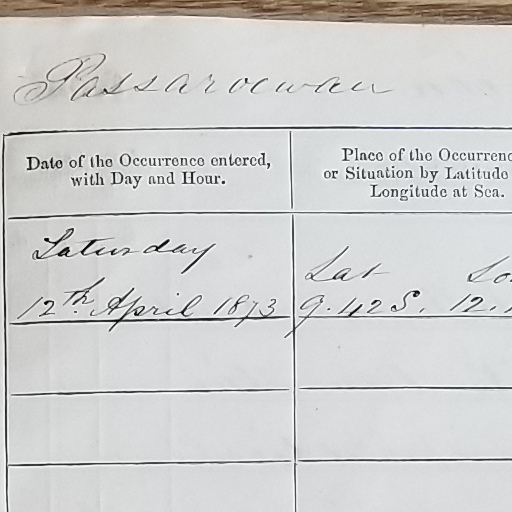 Passaroewan
Date of the Occurrence entered,
with Day and Hour.
Place of the Occurrenc
or Situation by Latitude
Longitude at Sea.
Saturday
12th April 1873
Lat Lo
9.42 S. 12.